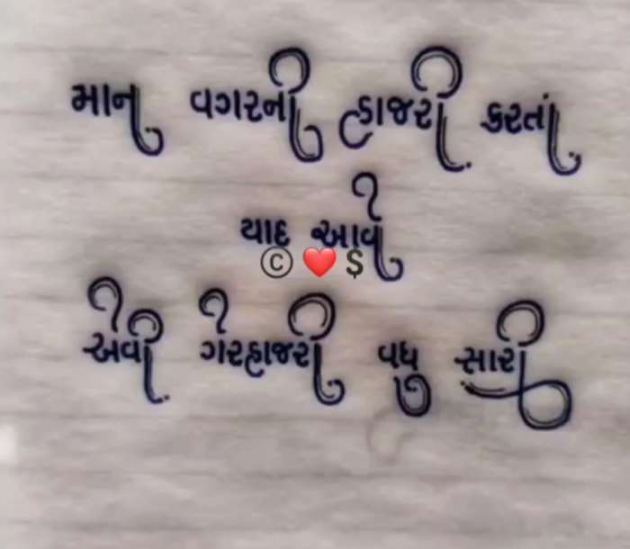 માન વગરની હાજરી કરતાં
યાદ આવે
© ❤️ $
એવી ગેરહાજરી વધુ સારી